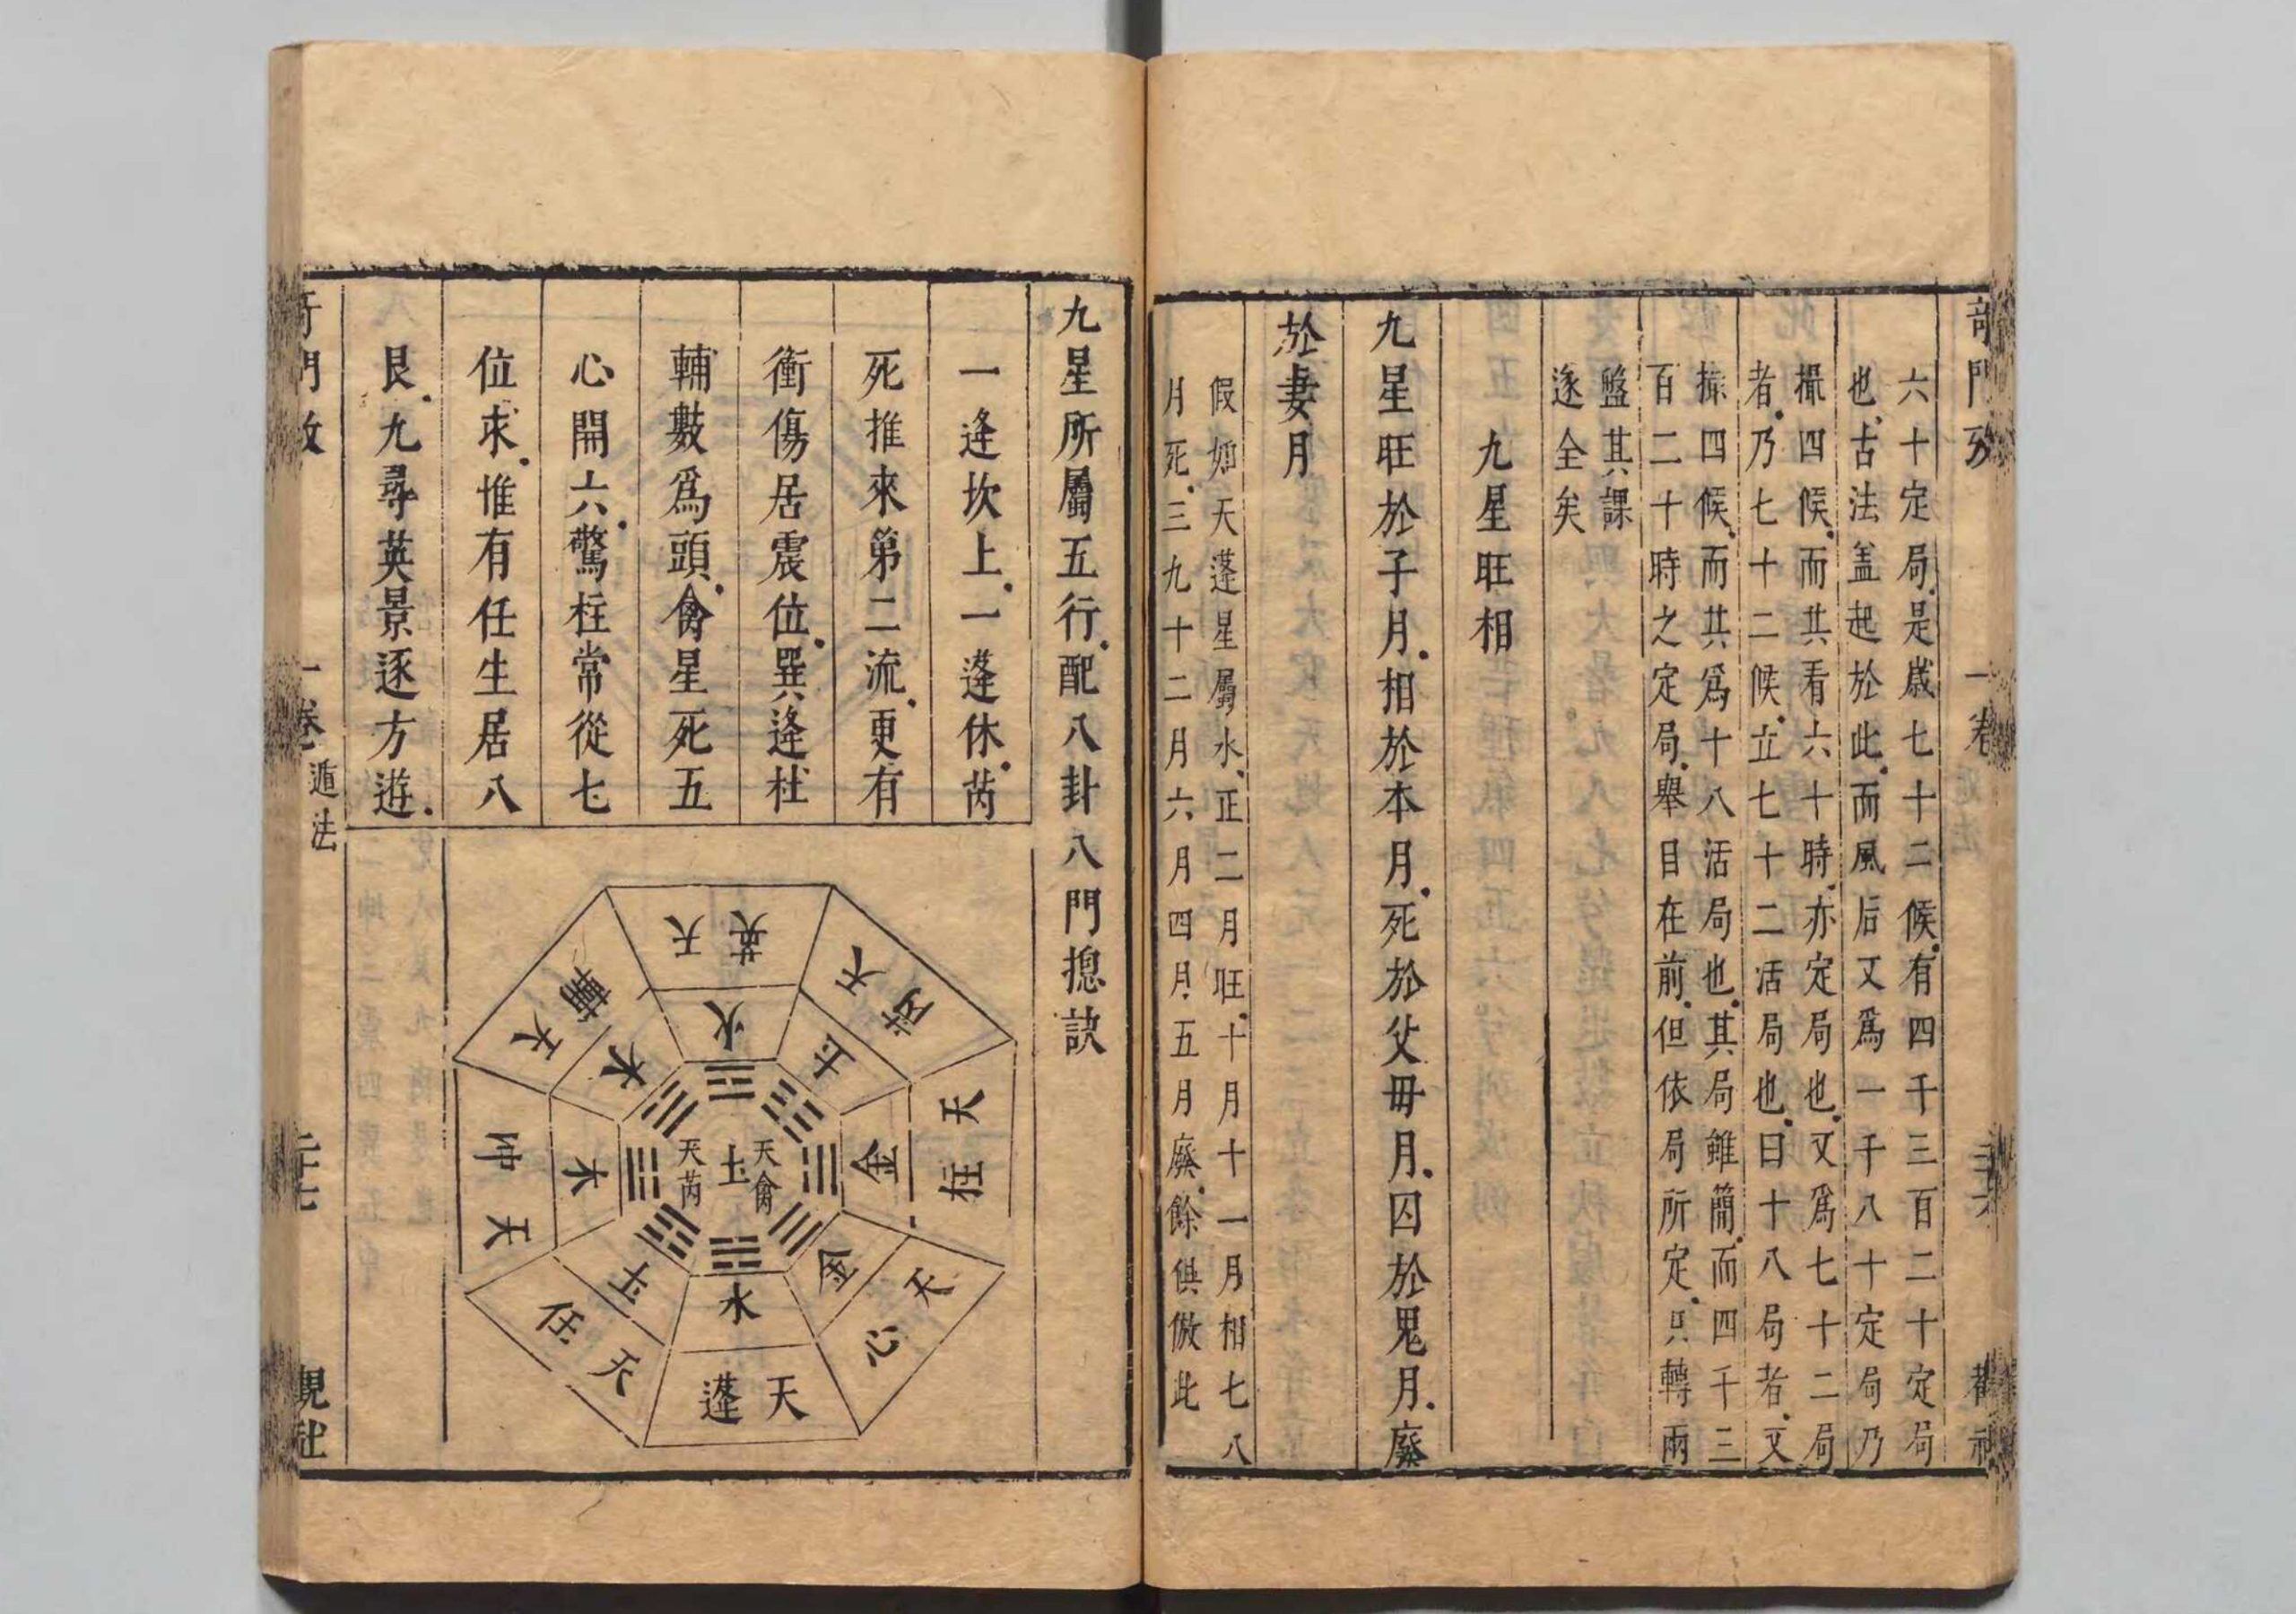 奇門攷 一卷
六十定局是歲七十二候有四千三百二十定局
也古法盖起於此而風后又爲一千八十定局乃
撮四候而其看六十時亦定局也又爲七十二局
者乃七十二候立七十二活局也曰十八局者又
撮四候而其爲十八活局也其局雖簡而四千三
百二十時之定局舉目在前但依局所定只轉兩
盤其課
遂全矣
九星旺相
九星旺於子月相於本月死於父毋月囚於鬼月廢
於妻月
假如天蓬星屬水正二月旺十月十一月相七八
月死三九十二月六月四月五月廢餘俱倣此
九星所屬五行配八卦八門摠訣
一逢坎上一蓬休芮
死推來第二流更有
衝傷居震位巽逢杜
輔數爲頭禽星死五
心開六驚柱常從七
位求惟有任生居八
艮九尋英景逐方遊
天英
火
天芮
土
天柱
金
天心
金
天蓬
水
天任
土
天冲
木
天輔
木
天禽
土
天芮
奇門攷 一卷 遁法 二十七